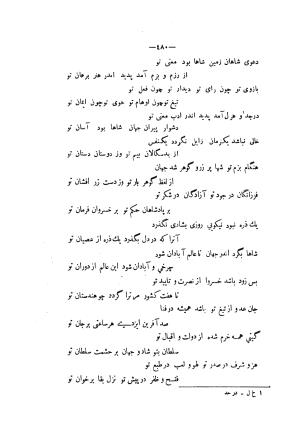 —۴۸۰—
دعوی شاهان زمین شاها بود معنی تو
از رزم و بزم آمد پدید اندر هنر برهان تو
بازوی تو چون رای تو دیدار تو چون فعل تو
تیغ تو چون اوهام تو خوی تو چون ایمان تو
در جد و هزل آمد پدید اندر ادب معنی تو
دشوار پیران جهان شاها بود آسان تو
خالی نباشد یکزمان زایل نگردد یکنفس
از بدسگالان بیم تو وز دوستان دستان تو
هنگام بزم تو شها پر زر و گوهر شد جهان
از لفظ گوهر بار تو وز دست زر افشان تو
فرزانگان در جود تو آزادگان در شکر تو
بر پادشاهان حکم تو بر خسروان فرمان تو
یك ذره نبود نیکوئی روزی بشادی نگذرد
آنرا که در دل بگذرد یك ذره از عصیان تو
شاها بگرد اندر جهان تا عالم آبادان شود
چرخی و آبادان شود این عالم از دوران تو
بس زود باشد خسروا از نصرت و تایید تو
تا هفت کشور مر ترا گردد چو هندستان تو
جان عدو از تیغ تو باشد همیشه در فنا
صد آفرین ایزدیست هر ساعتی بر جان تو
گیتی همه خرم شده از دولت و اقبال تو
سلطان بتو شاد و جهان بر حشمت سلطان تو
عز و شرف در صدر تو لهو و لعب در طبع تو
فتح و ظفر در پیش تو نزل بقا بر خوان تو
۱ خ ل -